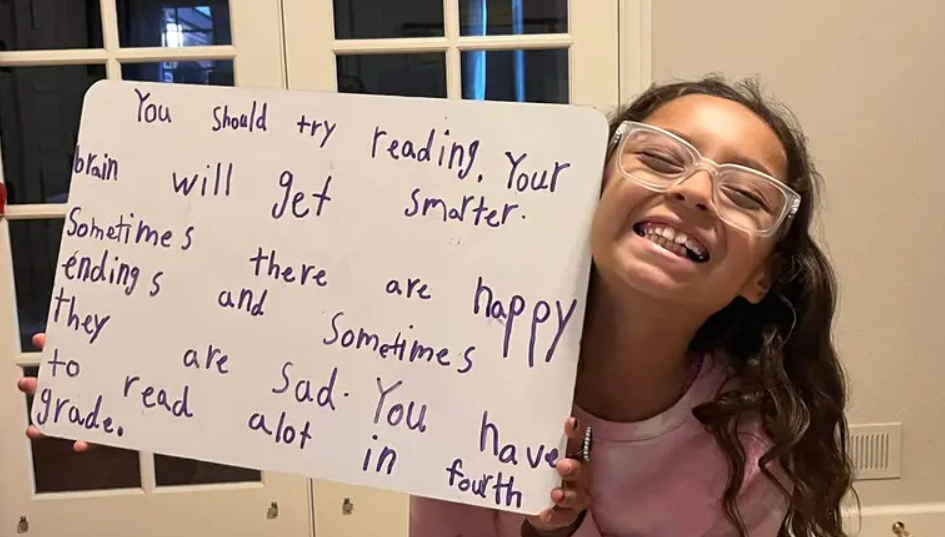 You should try reading. Your
brain will get smarter.
Sometimes there are happy
endings and Sometimes
they are sad. You have
to read alot in fourth
grade.